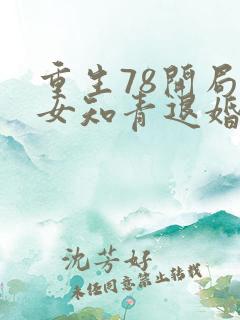 重生78开局
女知青退婚
沈芳好
未经同意禁止转载